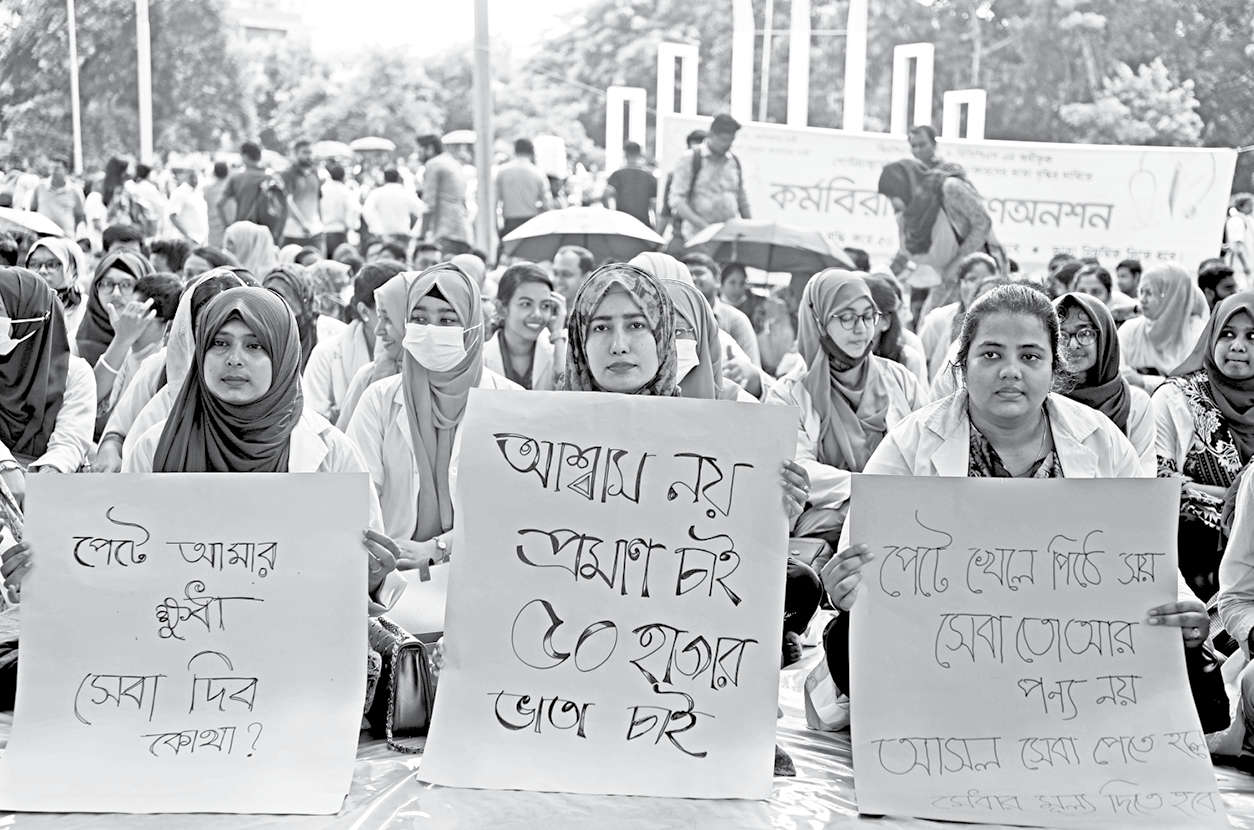 কর্মবির
ণঅনশন
পেটে আমার
ক্ষুধা
সেবা দিব
কোথা?
আশ্বাস নয়
প্রমাণ চাই
৫০ হাজার
ভাতা চাই
পেটে খেলে পিঠে সয়
সেবা তো আর
পণ্য নয়
আসল সেবা পেতে হলে
মেধার মূল্য দিতে হবে